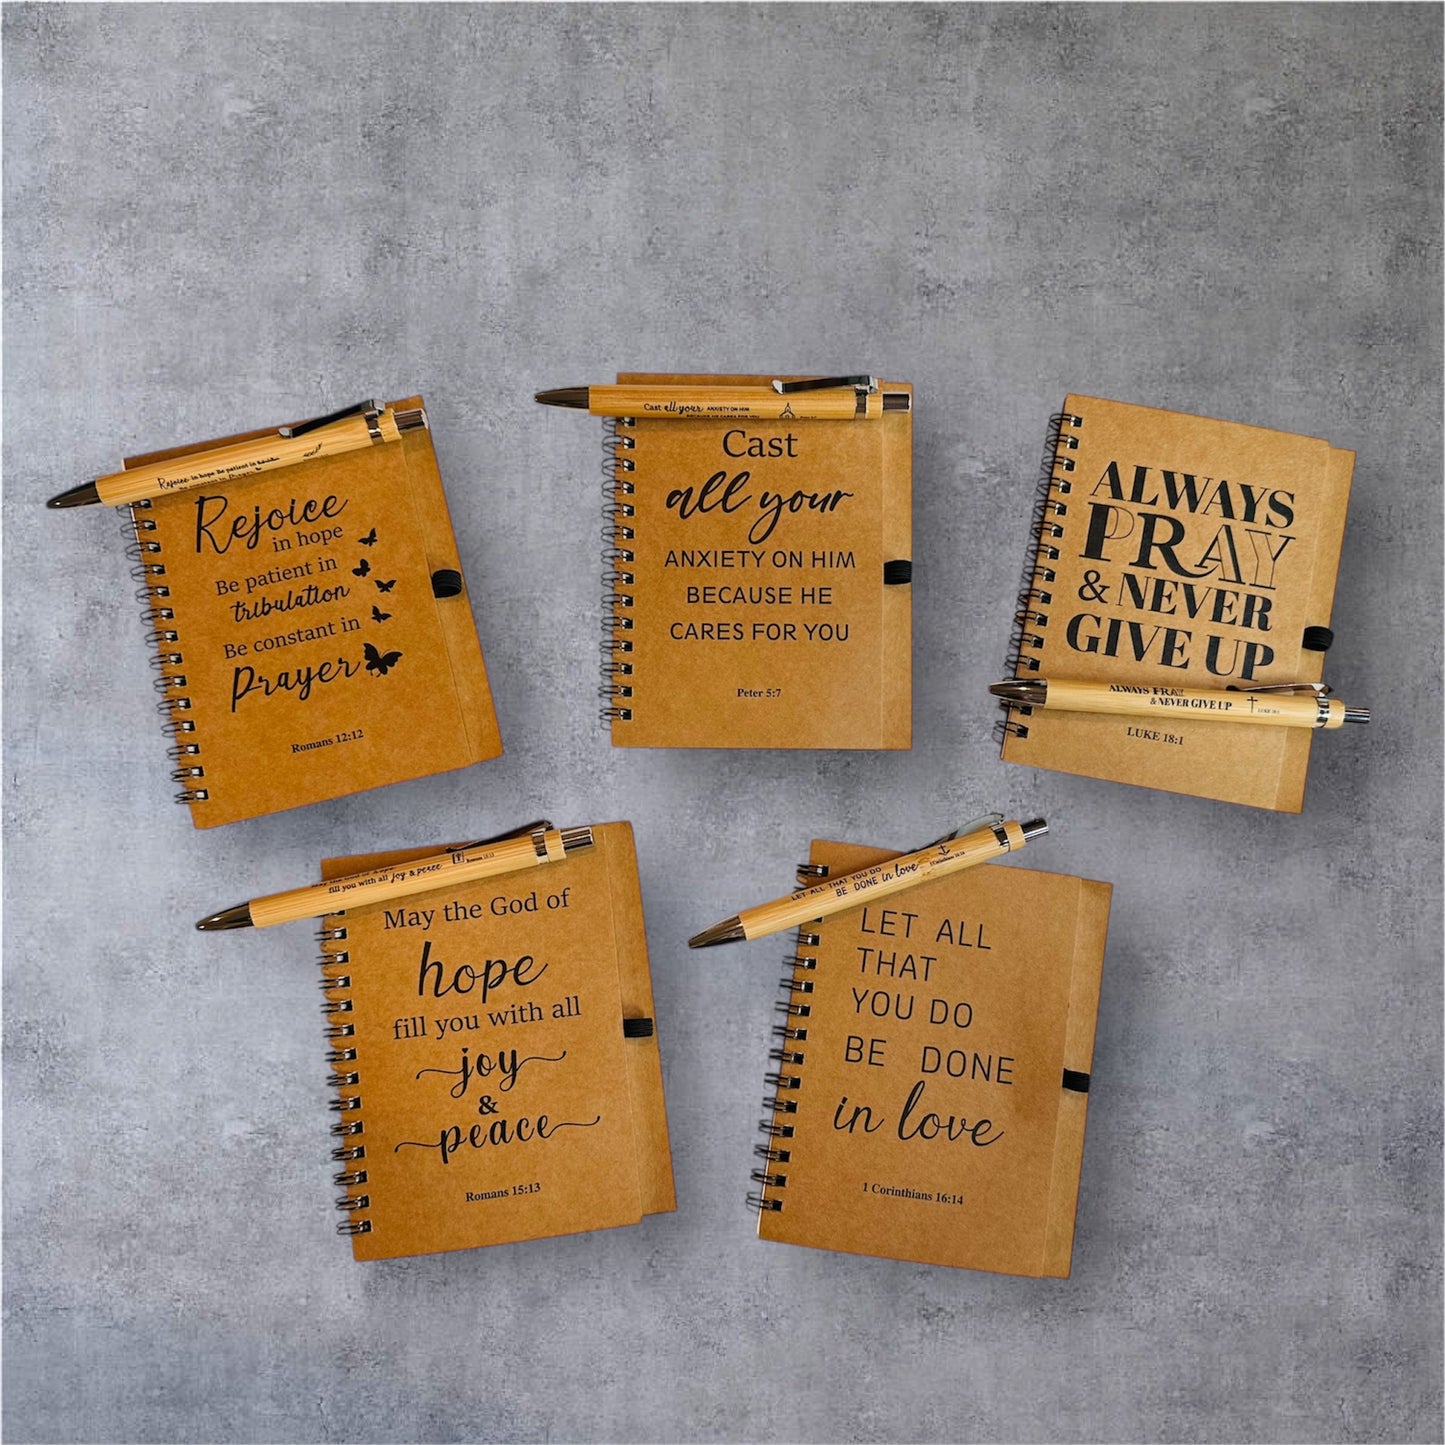 Rejoice in hope Be patient in
Rejoice
in hope
Be patient in
tribulation
Be constant in
Prayer
Romans 12:12
Cast all your ANXIETY ON HIM
BECAUSE HE CARES FOR YOU
Cast
all your
ANXIETY ON HIM
BECAUSE HE
CARES FOR YOU
Peter 5:7
ALWAYS
PRAY
& NEVER
GIVE UP
ALWAYS PRAY
& NEVER GIVE UP
LUKE 18:1
LUKE 18:1
May the God of hope
fill you with all joy & peace
Romans 15:13
May the God of
hope
fill you with all
joy
&
peace
Romans 15:13
LET ALL THAT YOU DO
BE DONE in love
1 Corinthians 16:14
LET ALL
THAT
YOU DO
BE DONE
in love
1 Corinthians 16:14